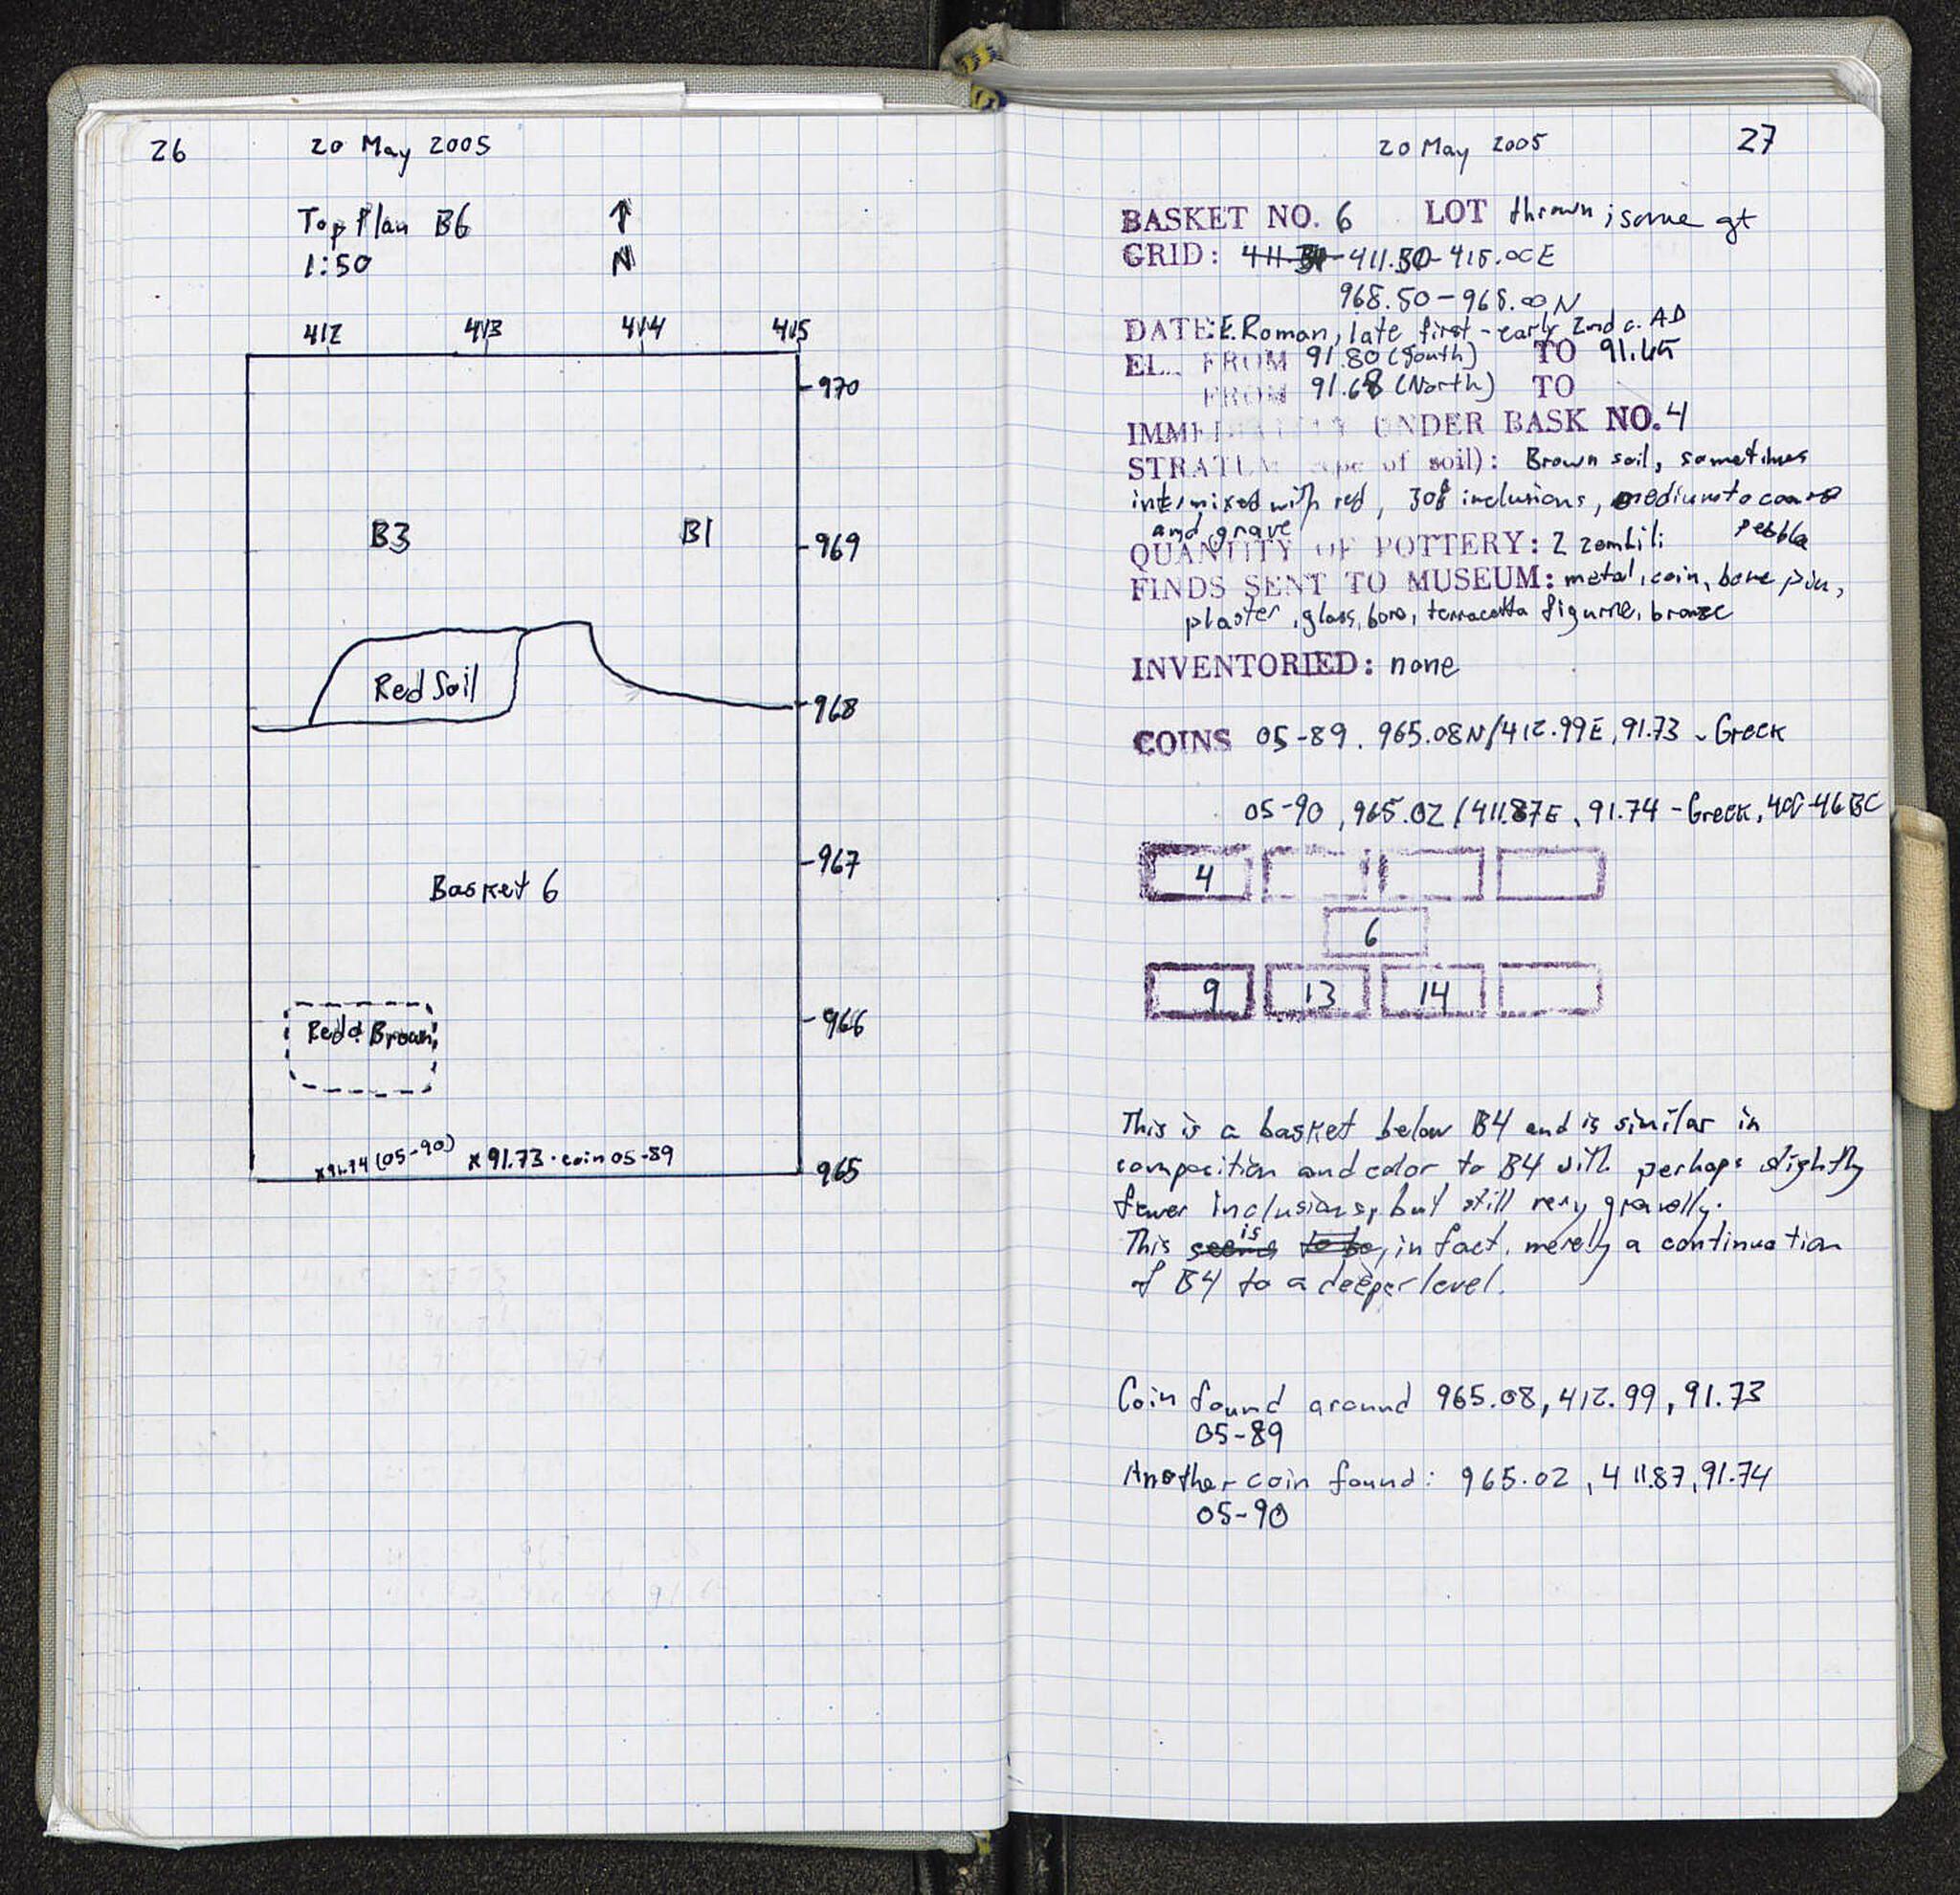 26
20 May 2005
Top Plan B6
1:50
↑
N
412 413 414 415
970
B3 B1
969
Red Soil
968
967
Basket 6
966
Red & Brown
x91.74 (05-90) x 91.73 · coin 05-89
965
20 May 2005
27
BASKET NO. 6 LOT thrown; some gt
GRID: 411.50-415.00E
968.50-965.00N
DATE: E. Roman, late first - early 2nd c. AD
EL. FROM 91.80 (South) TO 91.45
FROM 91.68 (North) TO
IMMEDIATELY UNDER BASK NO. 4
STRATUM (type of soil): Brown soil, sometimes
intermixed with red, 30% inclusions, medium to coarse
and gravel pebble
QUANTITY OF POTTERY: 2 zembili
FINDS SENT TO MUSEUM: metal, coin, bone pin,
plaster, glass, bone, terracotta figurine, bronze
INVENTORIED: none
COINS 05-89. 965.08N/412.99E, 91.73 - Greek
05-90, 965.02/411.87E, 91.74 - Greek, 400-146 BC
4
6
9 13 14
This is a basket below B4 and is similar in
composition and color to B4 with perhaps slightly
fewer inclusions, but still very gravelly.
This seems to be is, in fact, merely a continuation
of B4 to a deeper level.
Coin found around 965.08, 412.99, 91.73
05-89
Another coin found: 965.02, 411.87, 91.74
05-90